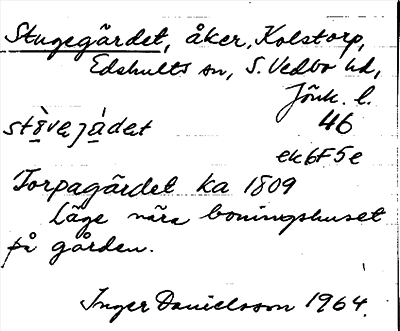 Stugegärdet, åker, Kolstorp,
Edshults sn, S. Vedbo hd,
Jönk. l.
46
ek6F5e
Torpagärdet ka 1809
Läge nära boningshuset
på gården.
Inger Danielsson 1964.